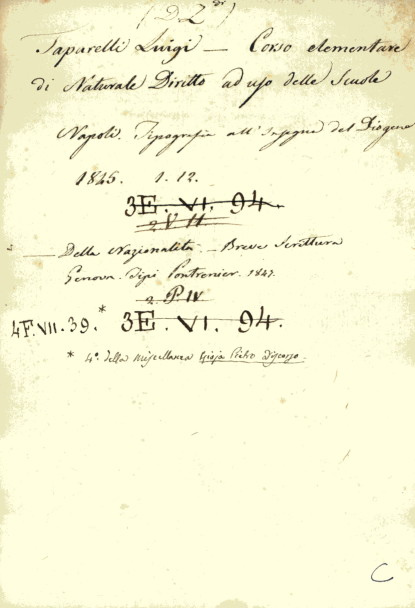 (D Z di)
Taparelli Luigi — Corso elementare
di Naturale Diritto ad uso delle Scuole
Napoli. Tipografia all'Insegna del Diogene
1845. 1. 12.
3E. VI. 94.
2 V II
— Della Nazionalità. — Breve Scrittura
Genova. Tipi Ponthenier. 1847.
2. P IV
4F. VII. 39.* 3E. VI. 94.
* 4°. della miscellanea Gioja Pietro Discorso.
C